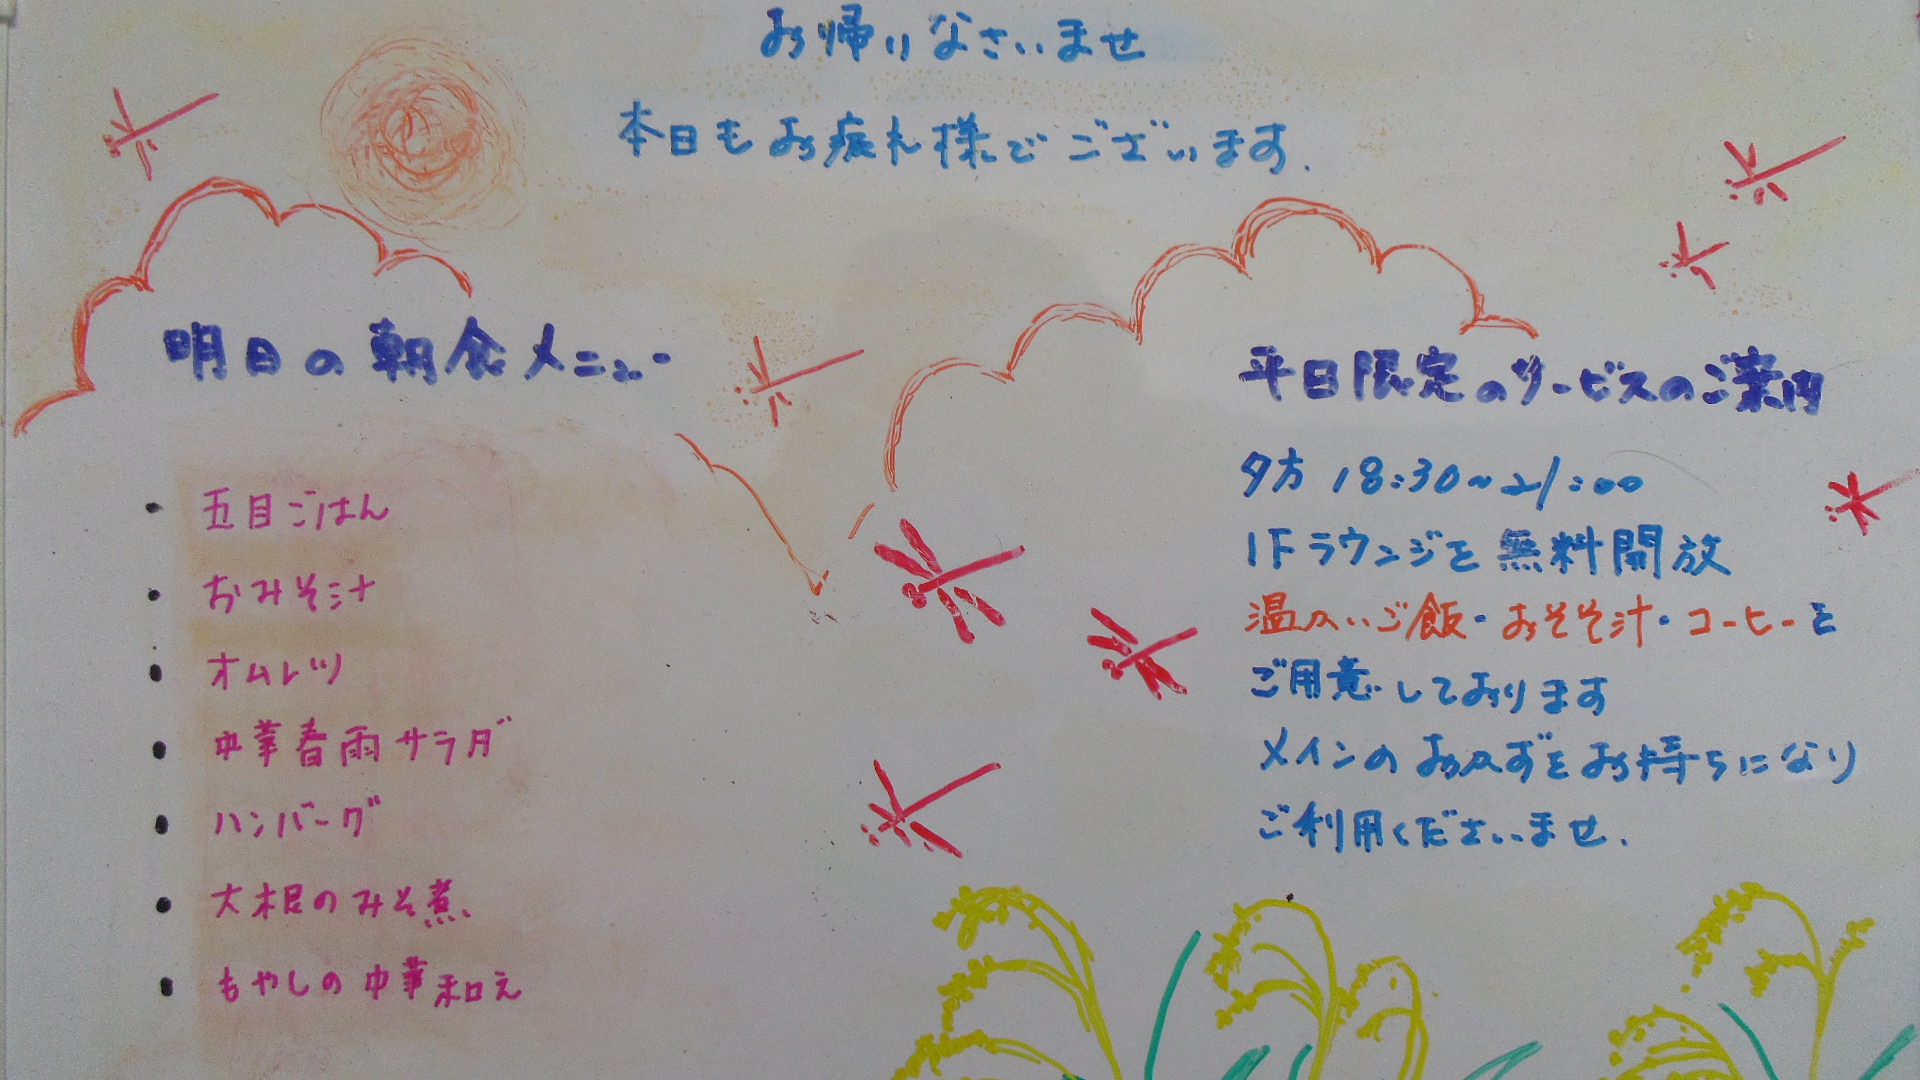 お帰りなさいませ
本日もお疲れ様でございます.
明日の朝食メニュー
・五目ごはん
・おみそ汁
・オムレツ
・中華春雨サラダ
・ハンバーグ
・大根のみそ煮
・もやしの中華和え
平日限定のサービスのご案内
夕方 18:30~21:00
1Fラウンジを無料開放
温かいご飯・おそそ汁・コーヒーを
ご用意しております
メインのおかずをお持ちになり
ご利用くださいませ.